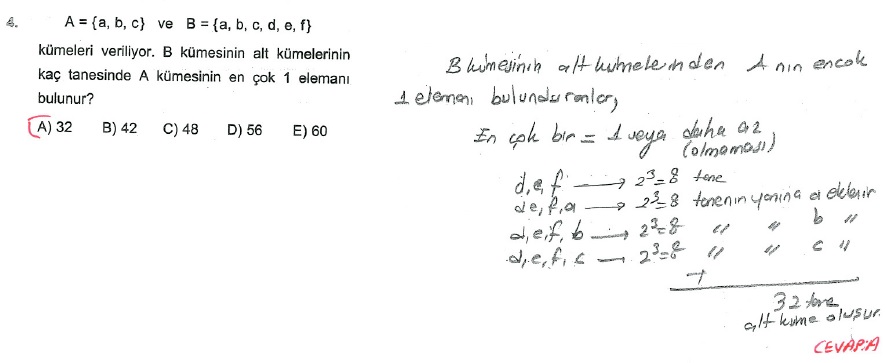 4. A = {a, b, c} ve B = {a, b, c, d, e, f}
kümeleri veriliyor. B kümesinin alt kümelerinin
kaç tanesinde A kümesinin en çok 1 elemanı
bulunur?
A) 32 B) 42 C) 48 D) 56 E) 60
B kümesinin alt kümelerinden A nın en çok
1 elemanı bulunduranlar,
En çok bir = 1 veya daha az
(olmaması)
d,e,f → 2³=8 tane
d,e,f,a → 2³=8 tanenin yanına a eklenir
d,e,f,b → 2³=8 " " b "
d,e,f,c → 2³=8 " " c "
+
32 tane
alt küme oluşur.
CEVAP:A